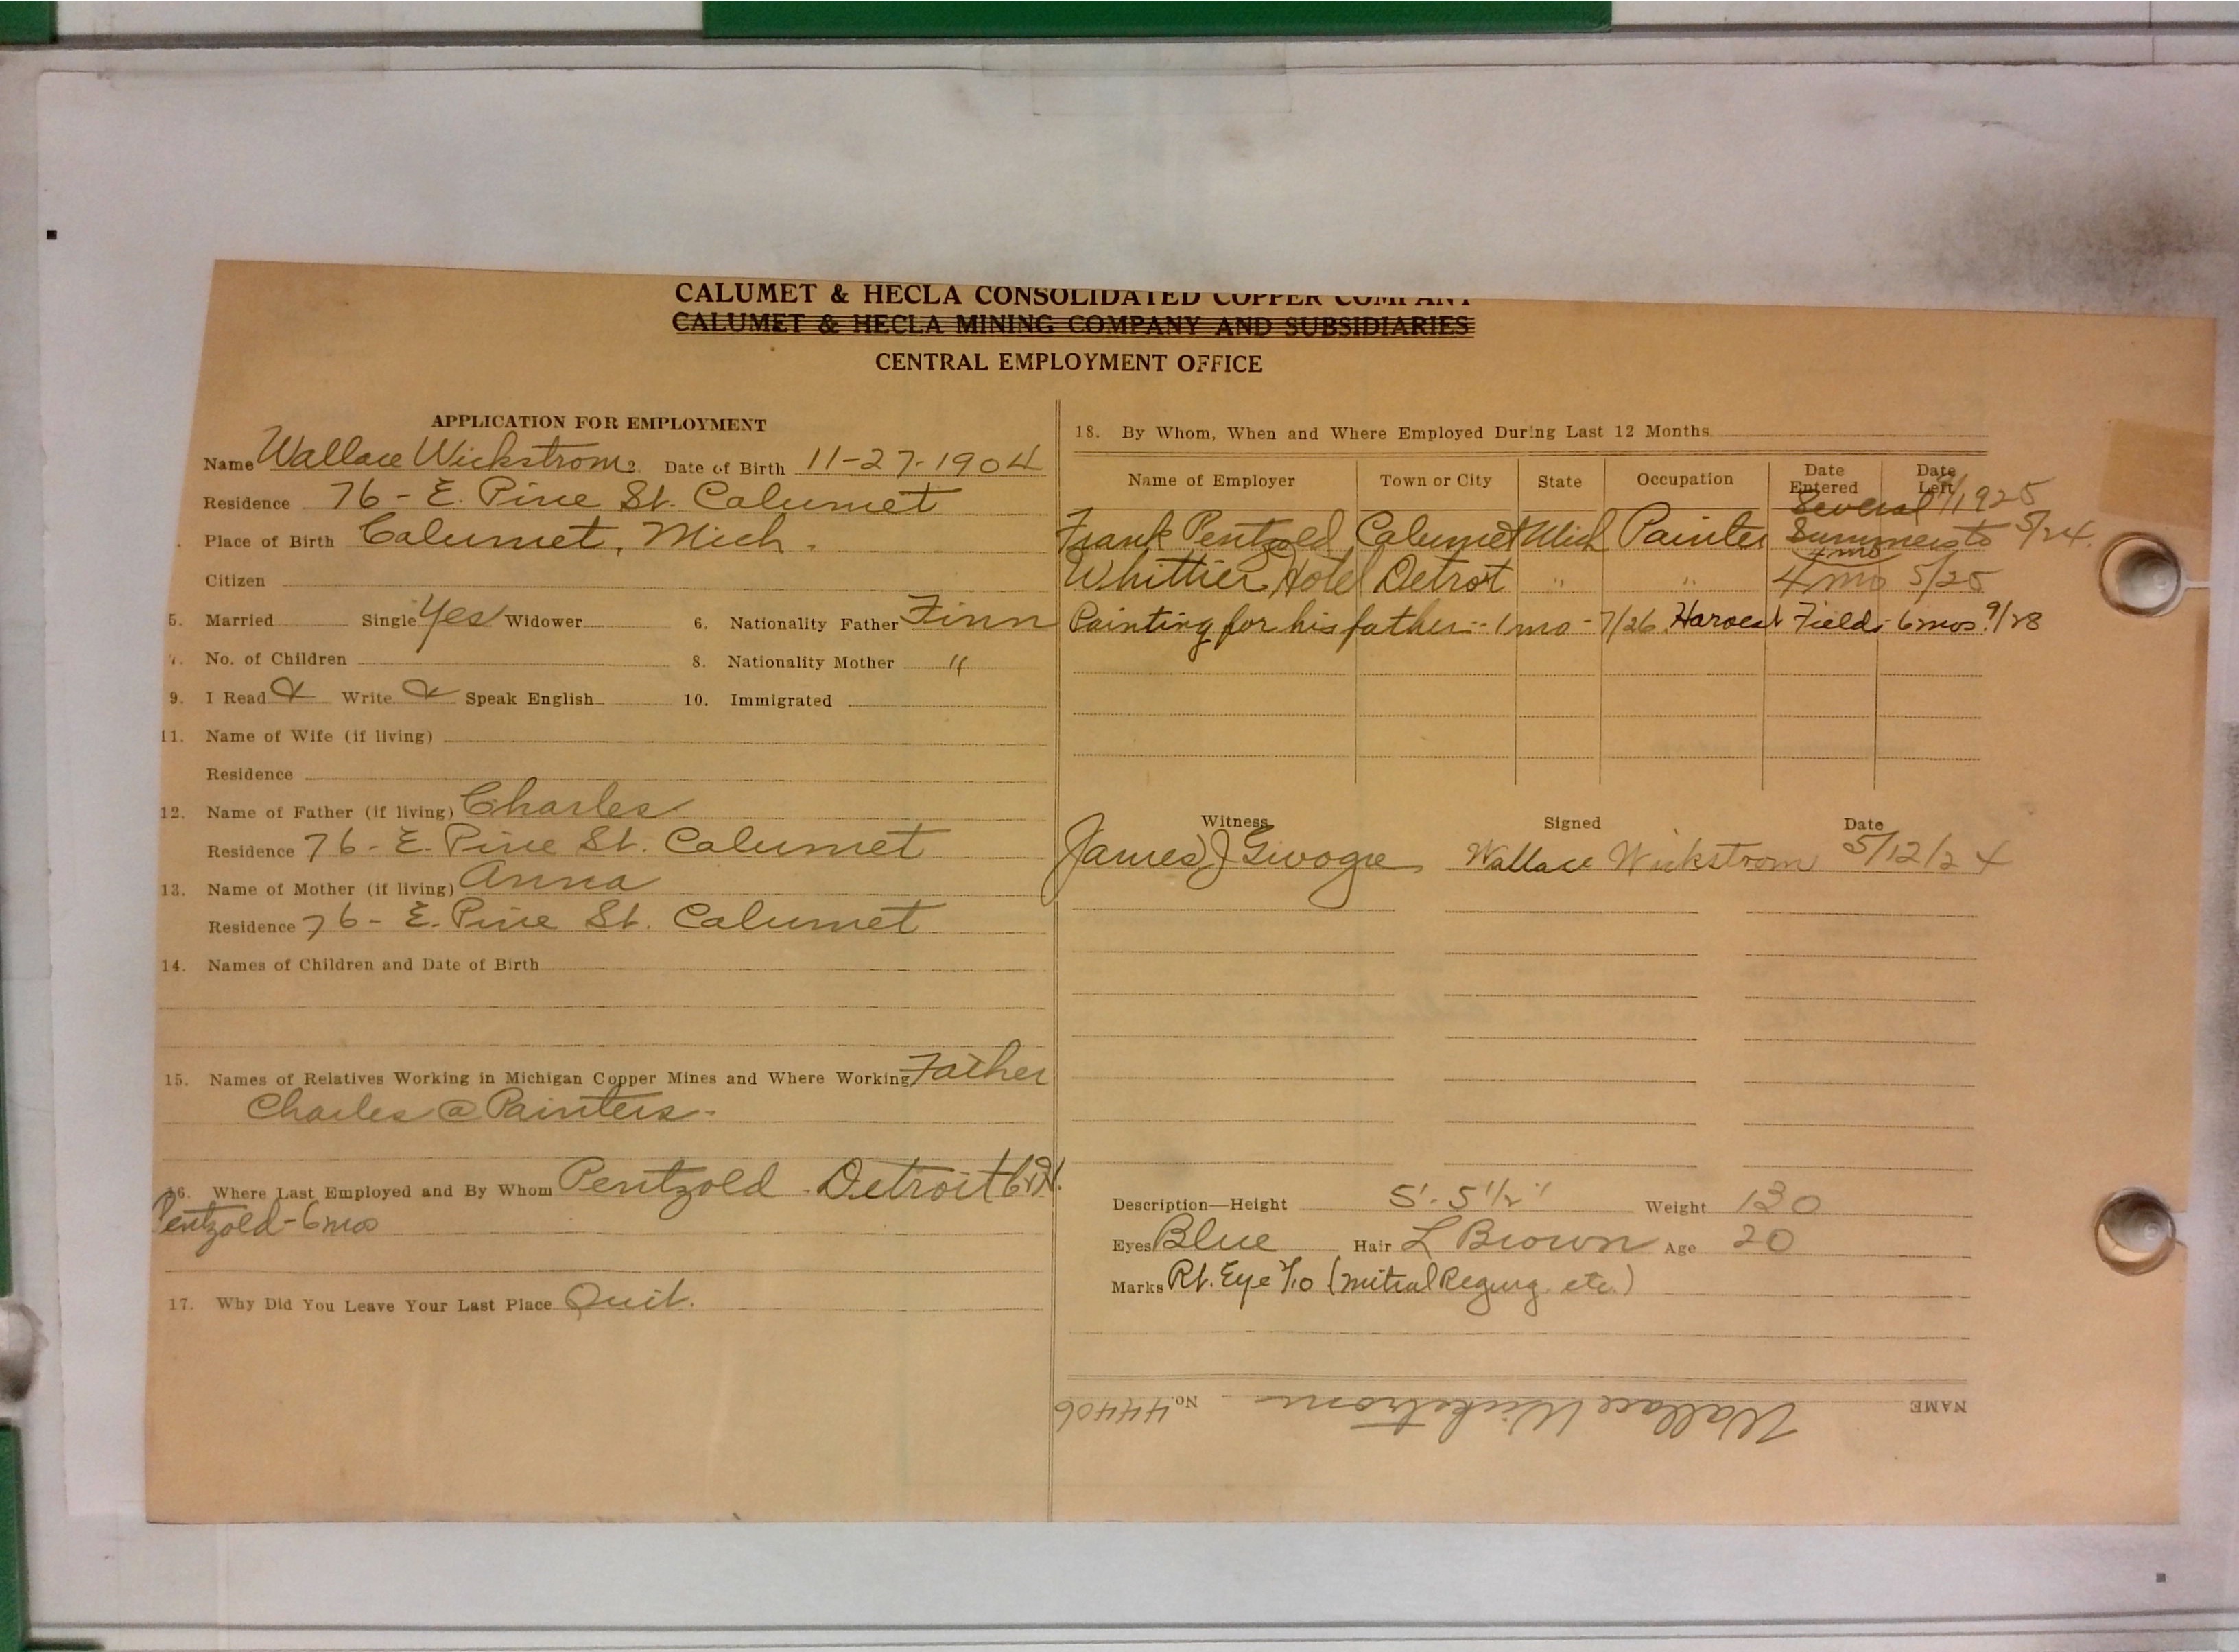 CALUMET & HECLA CONSOLIDATED COPPER COMPANY
CALUMET & HECLA MINING COMPANY AND SUBSIDIARIES
CENTRAL EMPLOYMENT OFFICE
APPLICATION FOR EMPLOYMENT
Name Wallace Wickstrom Date of Birth 11-27-1904
Residence 76 - E. Pine St. Calumet
Place of Birth Calumet, Mich.
Citizen
5. Married Single Yes Widower 6. Nationality Father Finn
7. No. of Children 8. Nationality Mother "
9. I Read & Write & Speak English 10. Immigrated
11. Name of Wife (if living)
Residence
12. Name of Father (if living) Charles
Residence 76 - E. Pine St. Calumet
13. Name of Mother (if living) Anna
Residence 76 - E. Pine St. Calumet
14. Names of Children and Date of Birth
15. Names of Relatives Working in Michigan Copper Mines and Where Working Father
Charles @ Painters -
16. Where Last Employed and By Whom Pentzold - Detroit
Pentzold - 6 mos
17. Why Did You Leave Your Last Place Quit.
18. By Whom, When and Where Employed During Last 12 Months
Name of Employer Town or City State Occupation Date Entered Date Left
Several 1925
Frank Pentzold Calumet Mich Painter Summers to 5/24
4 mo
Whittier Hotel Detroit " " 4 mo 5/25
Painting for his father - 1 mo - 7/26. Harvest Fields 6 mos. 9/28
Witness Signed Date
James J Wallace Wickstrom 5/12/24
Description—Height 5'- 5 1/2" Weight 130
Eyes Blue Hair L Brown Age 20
Marks Rt. Eye 7/10 (Mitral Regurg. etc.)
NAME Wallace Wickstrom No. 44406